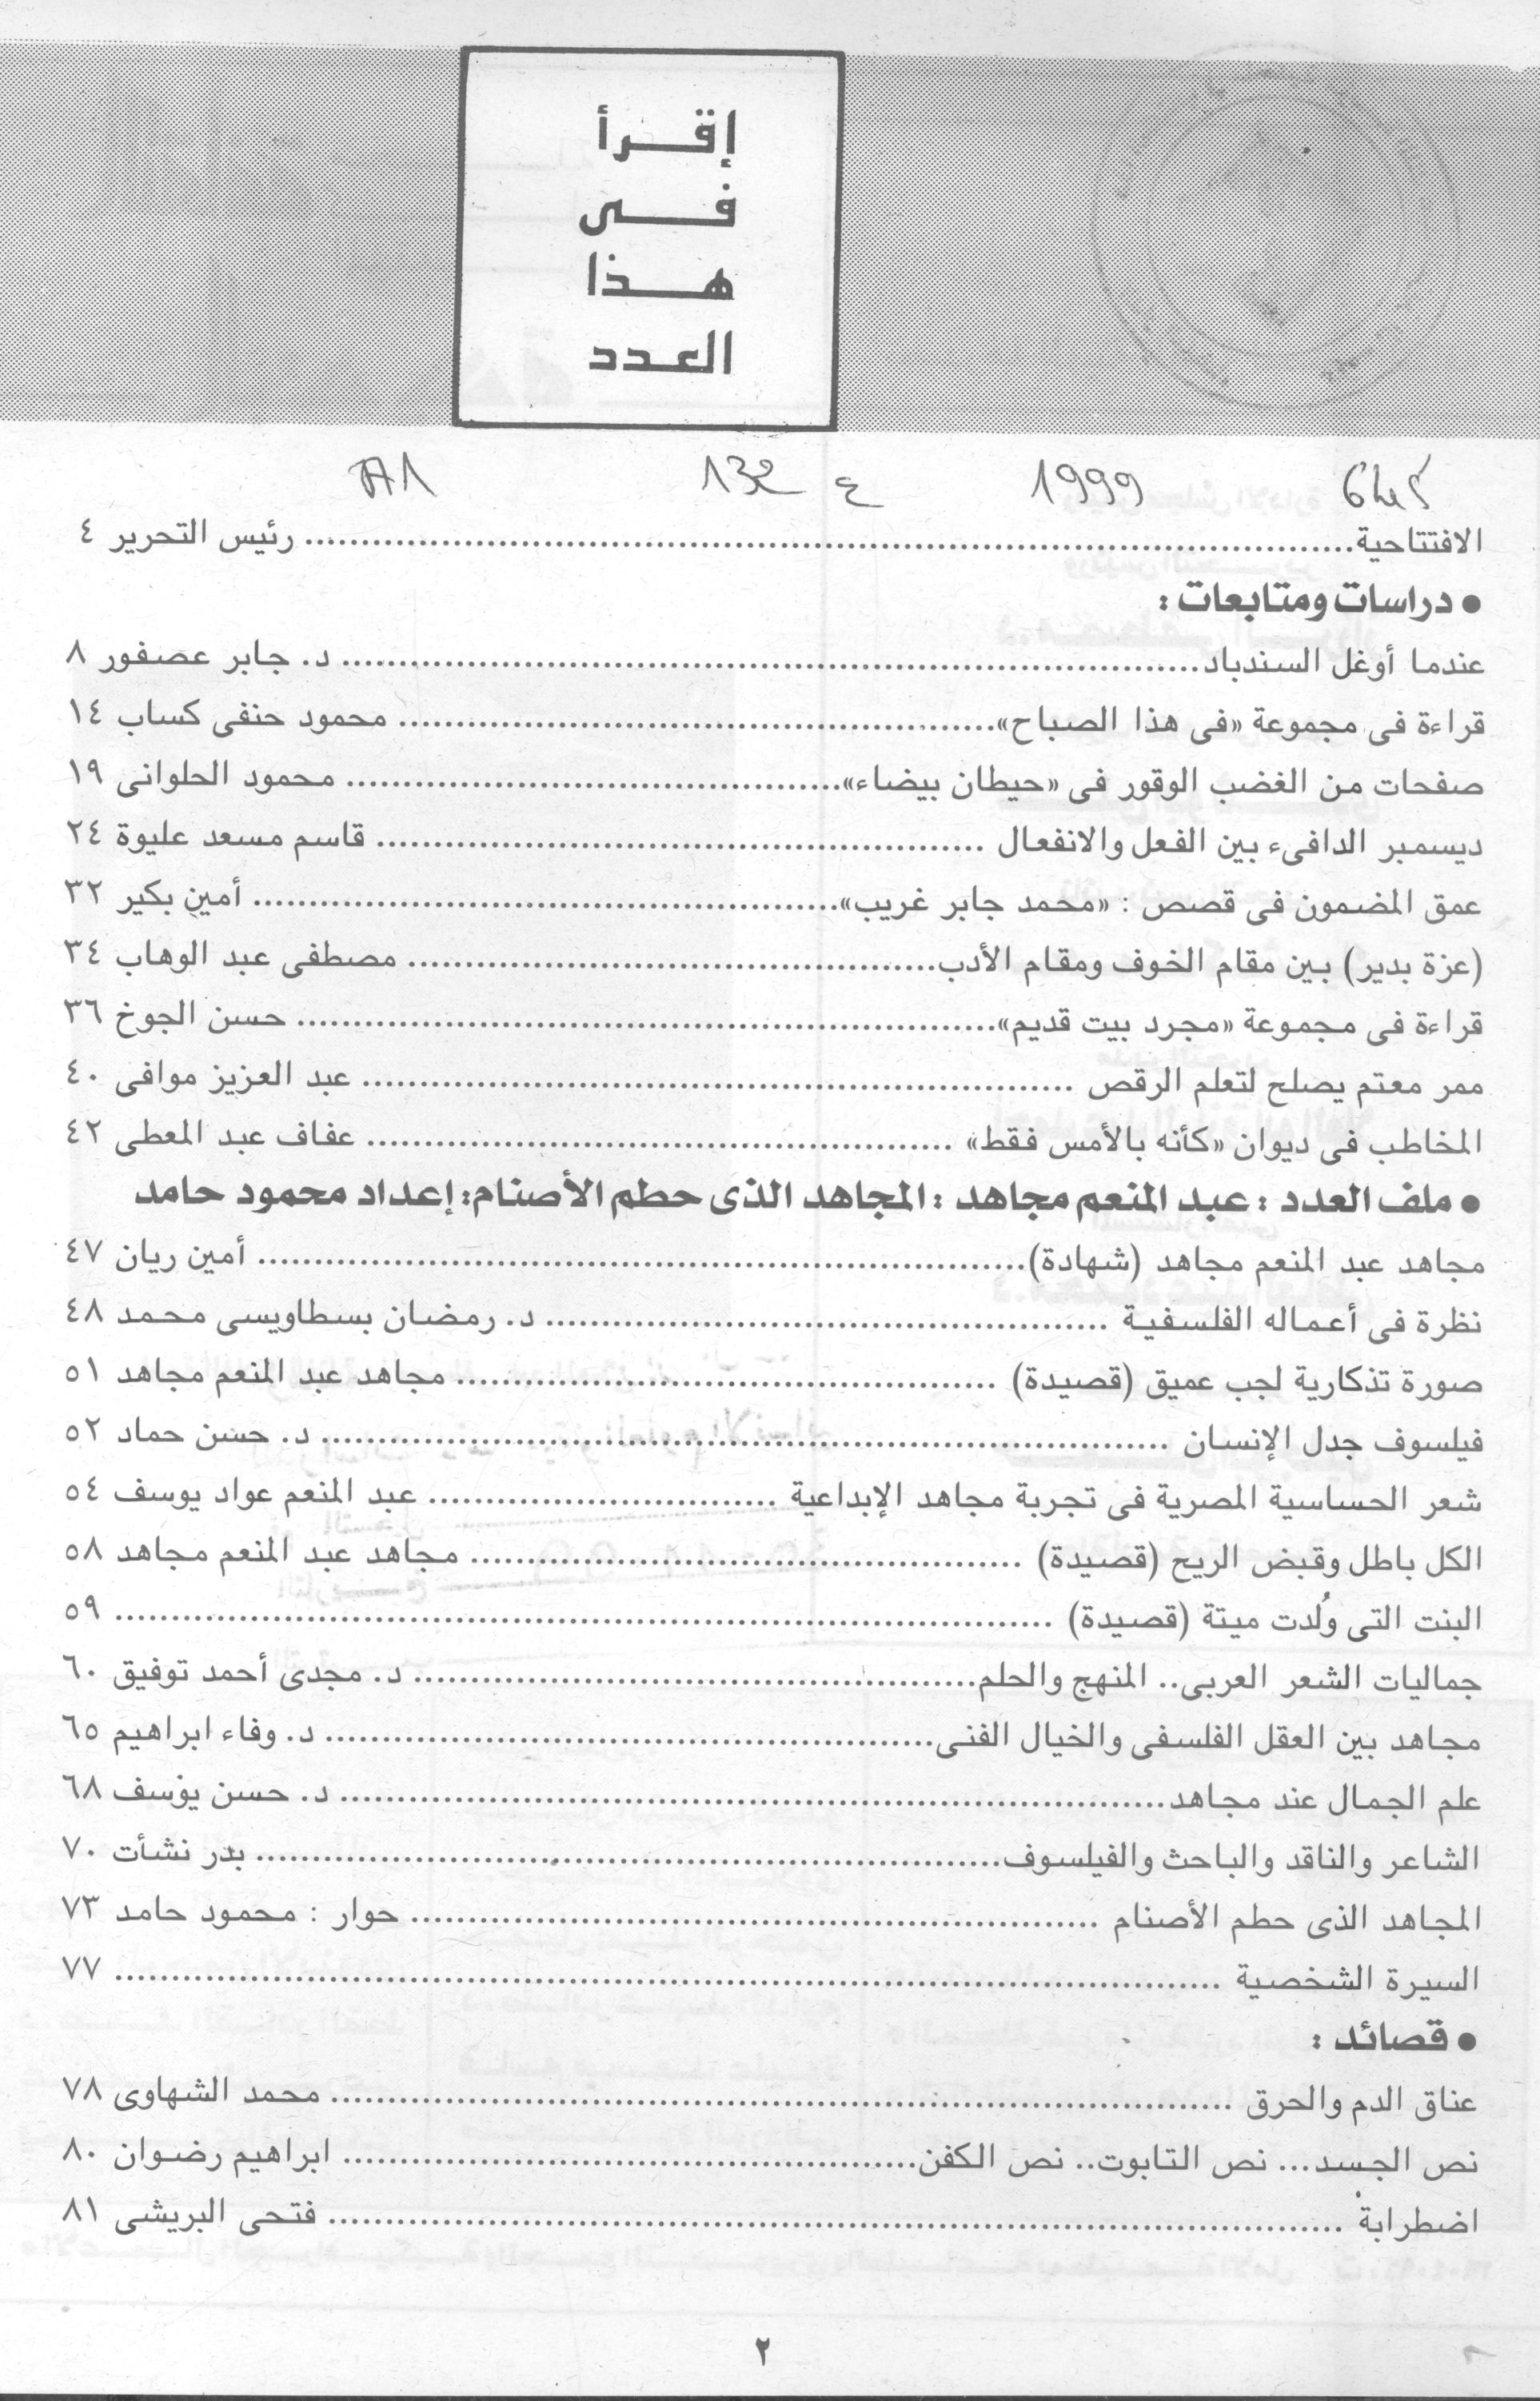 إقرأ
فى
هذا
العدد
1999 132 ٤
الافتتاحية .......... رئيس التحرير ٤
• دراسات ومتابعات :
عندما أوغل السندباد .......... د. جابر عصفور ٨
قراءة فى مجموعة «فى هذا الصباح» .......... محمود حنفى كساب ١٤
صفحات من الغضب الوقور فى «حيطان بيضاء» .......... محمود الحلوانى ١٩
ديسمبر الدافىء بين الفعل والانفعال .......... قاسم مسعد عليوة ٢٤
عمق المضمون فى قصص : «محمد جابر غريب» .......... أمين بكير ٣٢
(عزة بدير) بين مقام الخوف ومقام الأدب .......... مصطفى عبد الوهاب ٣٤
قراءة فى مجموعة «مجرد بيت قديم» .......... حسن الجوخ ٣٦
ممر معتم يصلح لتعلم الرقص .......... عبد العزيز موافى ٤٠
المخاطب فى ديوان «كأنه بالأمس فقط» .......... عفاف عبد المعطى ٤٢
• ملف العدد : عبد المنعم مجاهد : المجاهد الذى حطم الأصنام: إعداد محمود حامد
مجاهد عبد المنعم مجاهد (شهادة) .......... أمين ريان ٤٧
نظرة فى أعماله الفلسفية .......... د. رمضان بسطاويسى محمد ٤٨
صورة تذكارية لجب عميق (قصيدة) .......... مجاهد عبد المنعم مجاهد ٥١
فيلسوف جدل الإنسان .......... د. حسن حماد ٥٢
شعر الحساسية المصرية فى تجربة مجاهد الإبداعية .......... عبد المنعم عواد يوسف ٥٤
الكل باطل وقبض الريح (قصيدة) .......... مجاهد عبد المنعم مجاهد ٥٨
البنت التى وُلدت ميتة (قصيدة) .......... ٥٩
جماليات الشعر العربى.. المنهج والحلم .......... د. مجدى أحمد توفيق ٦٠
مجاهد بين العقل الفلسفى والخيال الفنى .......... د. وفاء ابراهيم ٦٥
علم الجمال عند مجاهد .......... د. حسن يوسف ٦٨
الشاعر والناقد والباحث والفيلسوف .......... بدر نشأت ٧٠
المجاهد الذى حطم الأصنام .......... حوار : محمود حامد ٧٣
السيرة الشخصية .......... ٧٧
• قصائد :
عناق الدم والحرق .......... محمد الشهاوى ٧٨
نص الجسد... نص التابوت.. نص الكفن .......... ابراهيم رضوان ٨٠
اضطرابة .......... فتحى البريشى ٨١
٢